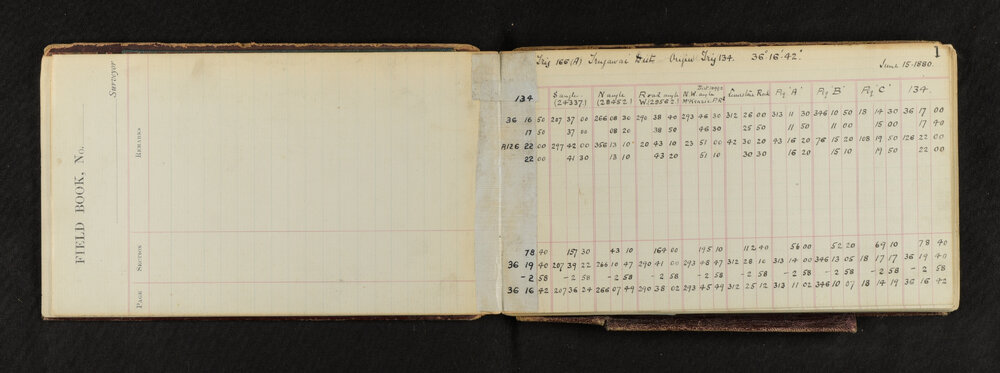 FIELD BOOK, No.
Surveyor
PAGE SECTION REMARKS
1
Trig 166 (A) Dist. Origin Trig 134. 36° 16' 42"
June 15-1880.
134. S angle N angle Road angle N.W. angle Rock Flg 'A' Flg 'B' Flg 'C' 134.
(24337) (28452) W(29562) McKenzie P.R.
36 16 50 207 37 00 266 08 30 290 38 40 293 46 30 312 26 00 313 11 30 346 10 50 18 14 30 36 17 00
17 50 37 00 08 20 38 50 46 30 25 50 11 50 11 00 15 00 17 40
A126 22 00 297 42 00 356 13 10 20 43 10 23 51 00 42 30 20 43 16 20 76 15 20 108 19 50 126 22 00
22 00 41 30 13 10 43 20 51 10 30 30 16 20 15 10 19 50 22 00
78 40 157 30 43 10 164 00 195 10 112 40 56 00 52 20 69 10 78 40
36 19 40 207 39 22 266 10 47 290 41 00 293 48 47 312 28 10 313 14 00 346 13 05 18 17 17 36 19 40
-2 58 -2 58 -2 58 -2 58 -2 58 -2 58 -2 58 -2 58 -2 58 -2 58
36 16 42 207 36 24 266 07 49 290 38 02 293 45 49 312 25 12 313 11 02 346 10 07 18 14 19 36 16 42